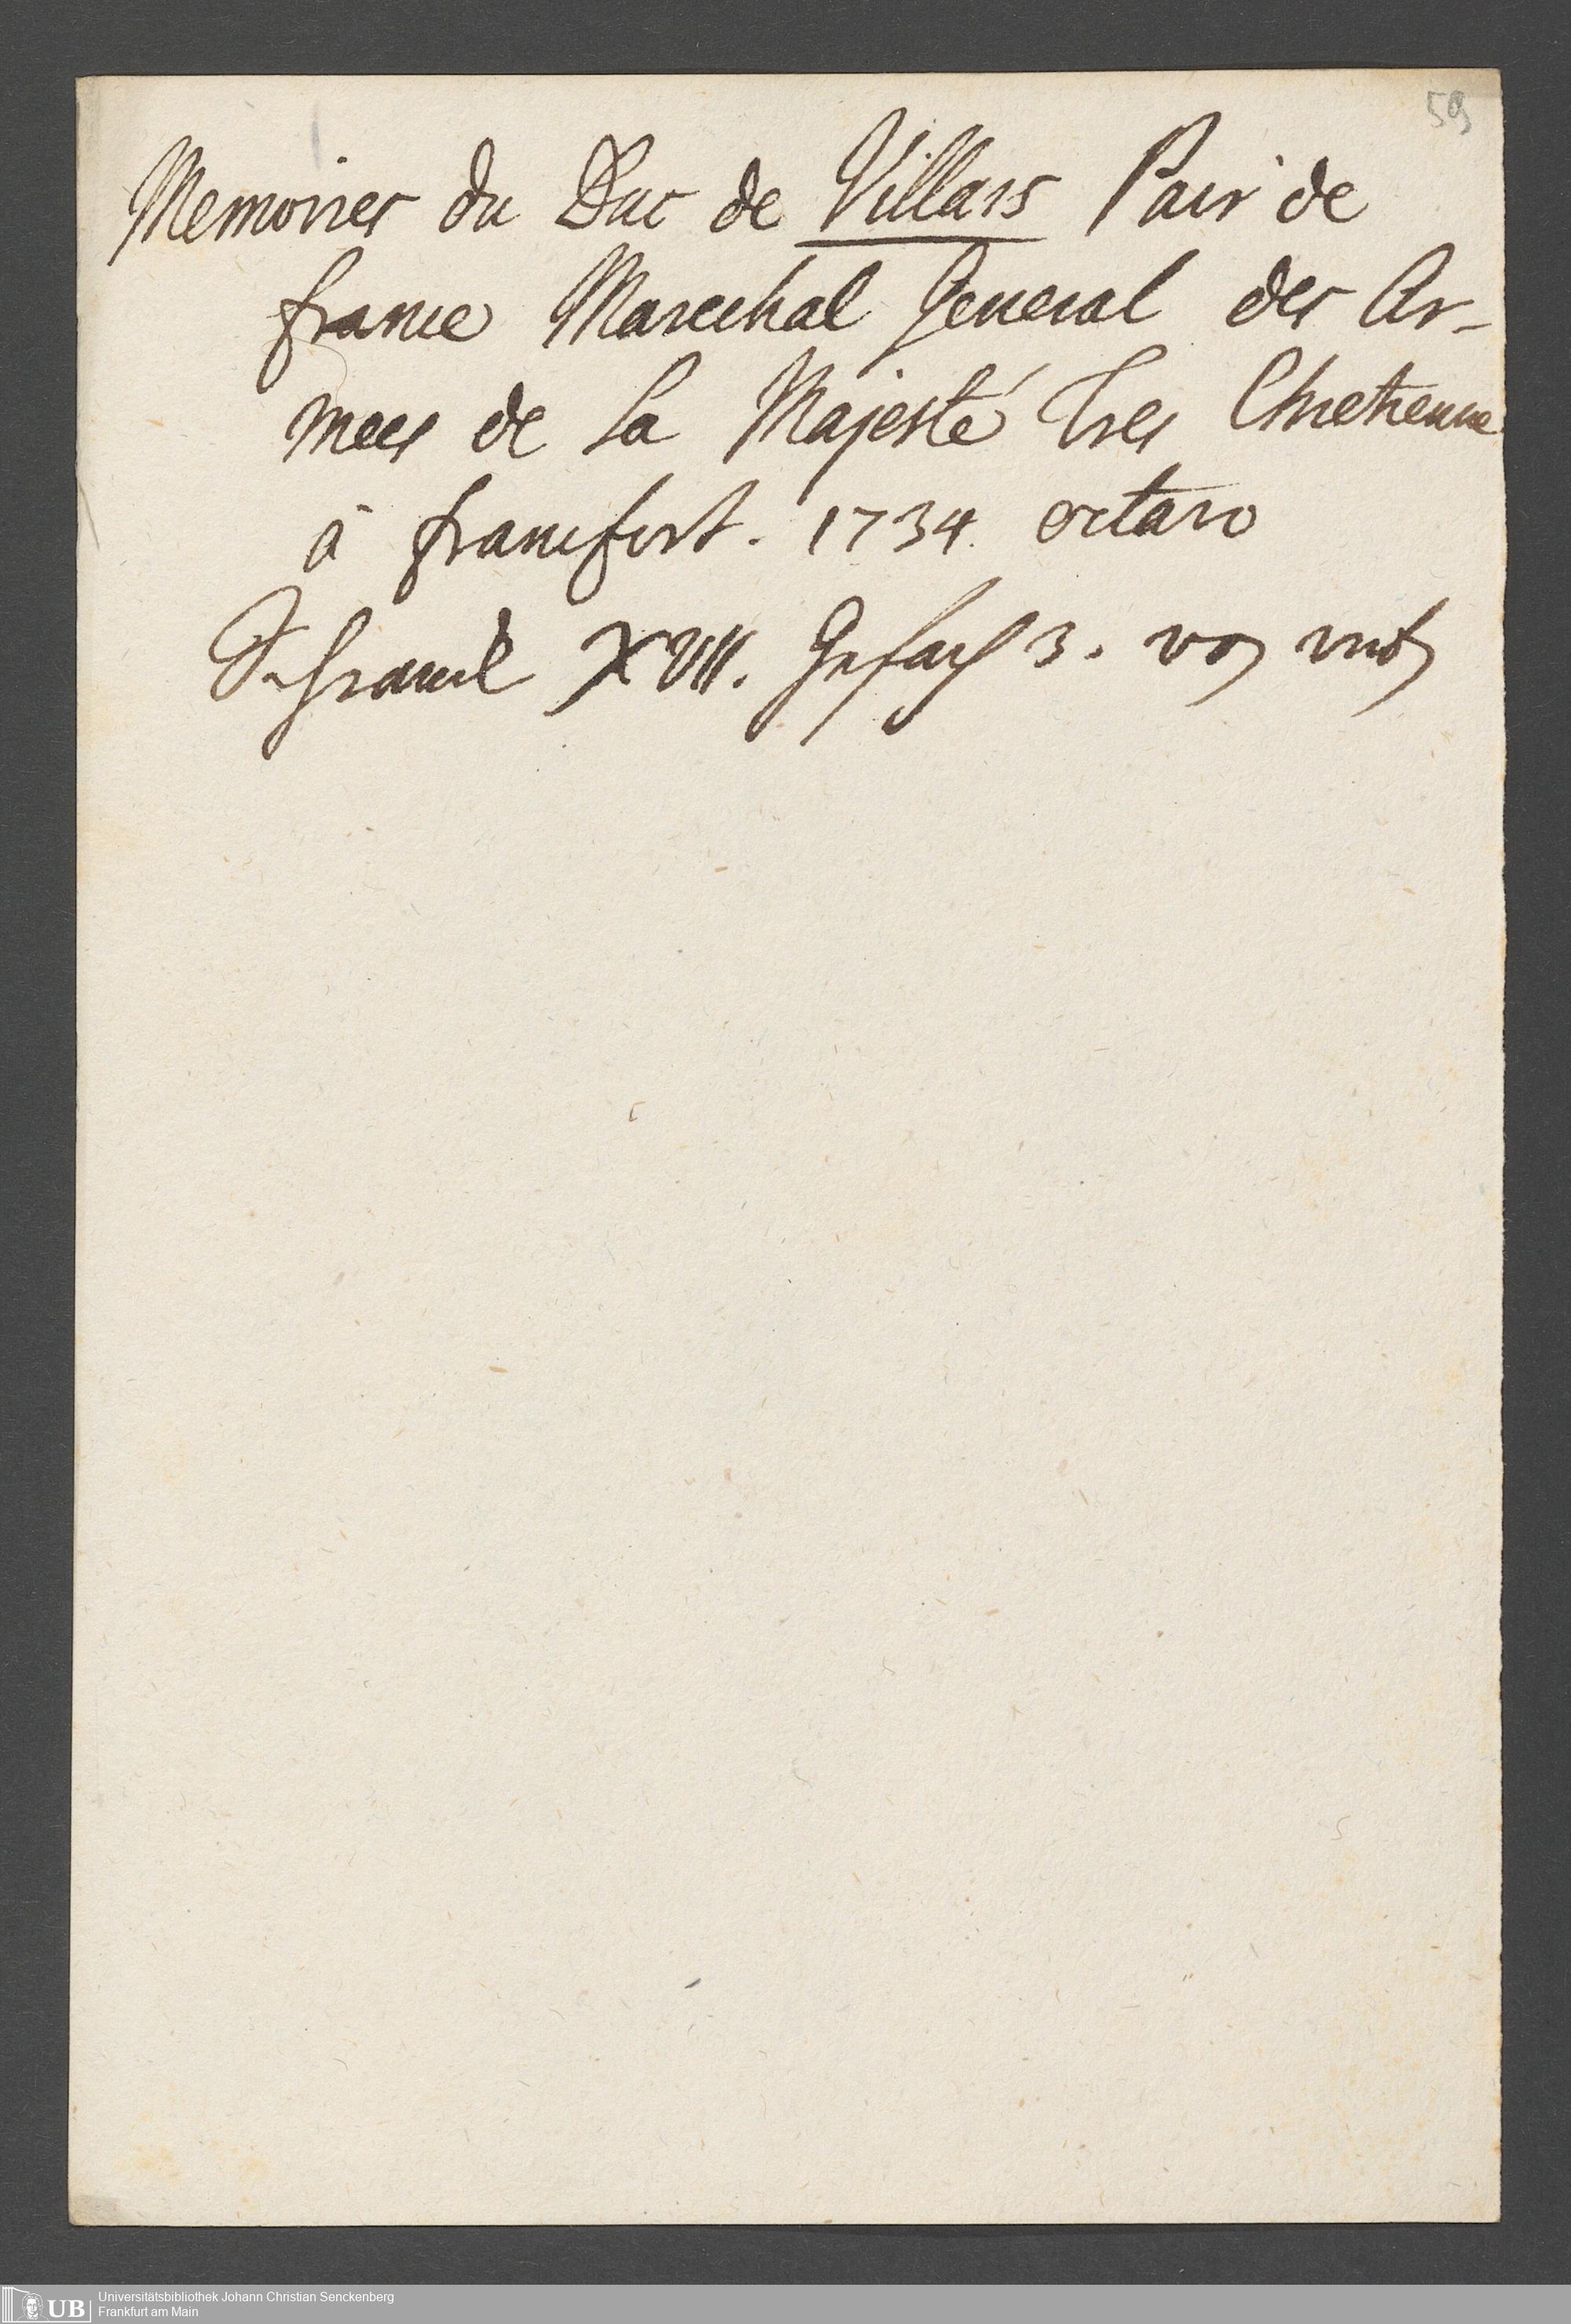 59
Memoires du Duc de Villars Pair de
france Marechal General des Ar-
mees de Sa Majesté Tres Chretienne
à francfort. 1734. octavo
Schranck XVII. Gefach 3. von
UB Universitätsbibliothek Johann Christian Senckenberg
Frankfurt am Main